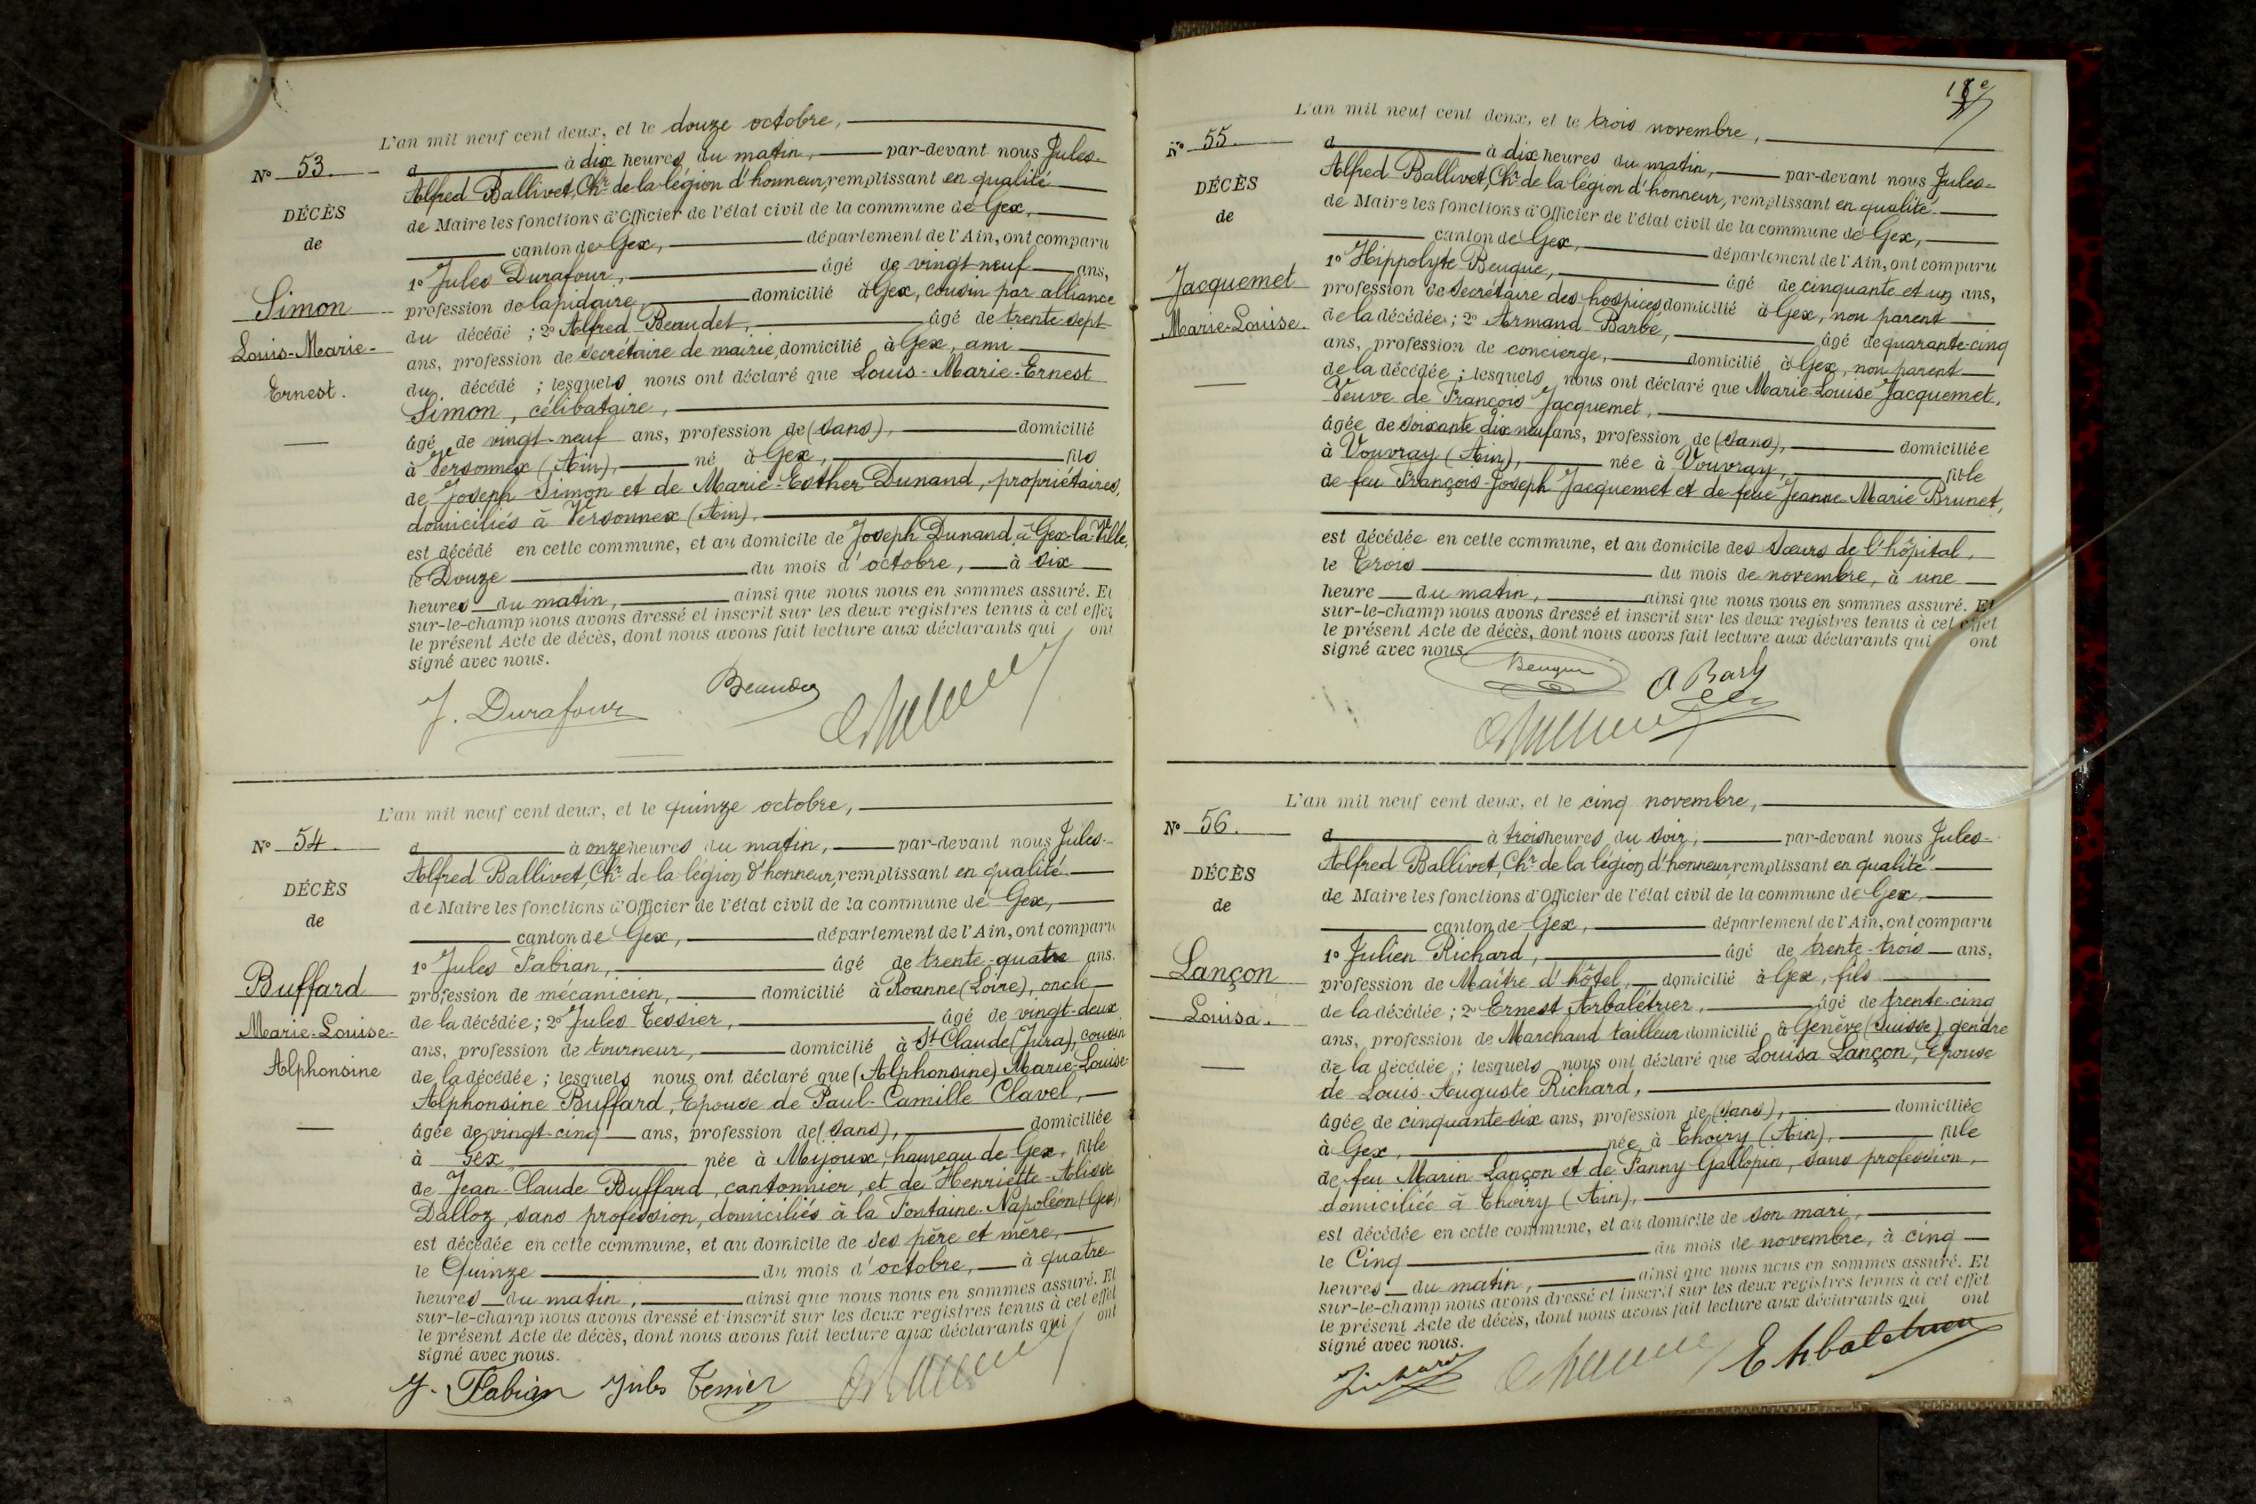 L'an mil neuf cent deux, et le douze octobre,
N° 53.
à dix heures du matin, par-devant nous Jules-
Alfred Ballivet, Chr de la légion d'honneur, remplissant en qualité
DÉCÈS
de Maire les fonctions d'Officier de l'état civil de la commune de Gex,
de
canton de Gex, département de l'Ain, ont comparu
1° Jules Durafour, âgé de vingt-neuf ans,
Simon
profession de lapidaire, domicilié à Gex, cousin par alliance
du décédé ; 2° Alfred Beaudet, âgé de trente-sept
Louis-Marie-
ans, profession de secrétaire de mairie, domicilié à Gex, ami
Ernest.
du décédé ; lesquels nous ont déclaré que Louis-Marie-Ernest
Simon, célibataire,
âgé de vingt-neuf ans, profession de (sans), domicilié
à Versonnex (Ain), né à Gex, fils
de Joseph Simon et de Marie-Esther Dunand, propriétaires,
domiciliés à Versonnex (Ain).
est décédé en cette commune, et au domicile de Joseph Dunand, à Gex-la-Ville,
le Douze du mois d'octobre, à six
heures du matin, ainsi que nous nous en sommes assuré. Et
sur-le-champ nous avons dressé et inscrit sur les deux registres tenus à cet effet
le présent Acte de décès, dont nous avons fait lecture aux déclarants qui ont
signé avec nous.
J. Durafour
L'an mil neuf cent deux, et le quinze octobre,
N° 54.
à onze heures du matin, par-devant nous Jules-
Alfred Ballivet, Chr de la légion d'honneur, remplissant en qualité
DÉCÈS
de Maire les fonctions d'Officier de l'état civil de la commune de Gex,
de
canton de Gex, département de l'Ain, ont comparu
1° Jules Fabian, âgé de trente-quatre ans,
Buffard
profession de mécanicien, domicilié à Roanne (Loire), oncle
de la décédée ; 2° Jules Tessier, âgé de vingt-deux
Marie-Louise-
ans, profession de tourneur, domicilié à St Claude (Jura), cousin
Alphonsine
de la décédée ; lesquels nous ont déclaré que (Alphonsine) Marie-Louise-
Alphonsine Buffard, Epouse de Paul-Camille Clavel,
âgée de vingt-cinq ans, profession de (sans), domiciliée
à Gex née à Mijoux, hameau de Gex, fille
de Jean-Claude Buffard, cantonnier, et de Henriette-Alisse
Dalloz, sans profession, domiciliés à la Fontaine-Napoléon (Gex),
est décédée en cette commune, et au domicile de ses père et mère,
le Quinze du mois d'octobre, à quatre
heures du matin, ainsi que nous nous en sommes assuré. Et
sur-le-champ nous avons dressé et inscrit sur les deux registres tenus à cet effet
le présent Acte de décès, dont nous avons fait lecture aux déclarants qui ont
signé avec nous.
J. Fabian Jules Tessier
L'an mil neuf cent deux, et le trois novembre,
N° 55.
à dix heures du matin, par-devant nous Jules-
Alfred Ballivet, Chr de la légion d'honneur, remplissant en qualité
DÉCÈS
de Maire les fonctions d'Officier de l'état civil de la commune de Gex,
de
canton de Gex, département de l'Ain, ont comparu
1° Hippolyte Beuque, âgé de cinquante et un ans,
Jacquemet
profession de secrétaire des hospices, domicilié à Gex, non parent
Marie-Louise.
de la décédée ; 2° Armand Barbe, âgé de quarante-cinq
ans, profession de concierge, domicilié à Gex, non parent
de la décédée ; lesquels nous ont déclaré que Marie-Louise Jacquemet,
Veuve de François Jacquemet,
âgée de soixante dix neuf ans, profession de (sans), domiciliée
à Vouvray (Ain), née à Vouvray, fille
de feu François-Joseph Jacquemet et de feue Jeanne Marie Brunet,
est décédée en cette commune, et au domicile des sœurs de l'hôpital,
le Trois du mois de novembre, à une
heure du matin, ainsi que nous nous en sommes assuré. Et
sur-le-champ nous avons dressé et inscrit sur les deux registres tenus à cet effet
le présent Acte de décès, dont nous avons fait lecture aux déclarants qui ont
signé avec nous.
Beuque
L'an mil neuf cent deux, et le cinq novembre,
N° 56.
à trois heures du soir, par-devant nous Jules-
Alfred Ballivet, Chr de la légion d'honneur, remplissant en qualité
DÉCÈS
de Maire les fonctions d'Officier de l'état civil de la commune de Gex,
de
canton de Gex, département de l'Ain, ont comparu
1° Julien Richard, âgé de trente-trois ans,
Lançon
profession de Maître d'hôtel, domicilié à Gex, fils
Louisa.
de la décédée ; 2° Ernest Arbalétrier, âgé de trente-cinq
ans, profession de Marchand tailleur domicilié à Genève (Suisse), gendre
de la décédée ; lesquels nous ont déclaré que Louisa Lançon, Epouse
de Louis-Auguste Richard,
âgée de cinquante-six ans, profession de (sans), domiciliée
à Gex, née à Thoiry (Ain), fille
de feu Marin Lançon et de Fanny Gallopin, sans profession,
domiciliée à Thoiry (Ain),
est décédée en cette commune, et au domicile de son mari,
le Cinq du mois de novembre, à cinq
heures du matin, ainsi que nous nous en sommes assuré. Et
sur-le-champ nous avons dressé et inscrit sur les deux registres tenus à cet effet
le présent Acte de décès, dont nous avons fait lecture aux déclarants qui ont
signé avec nous.